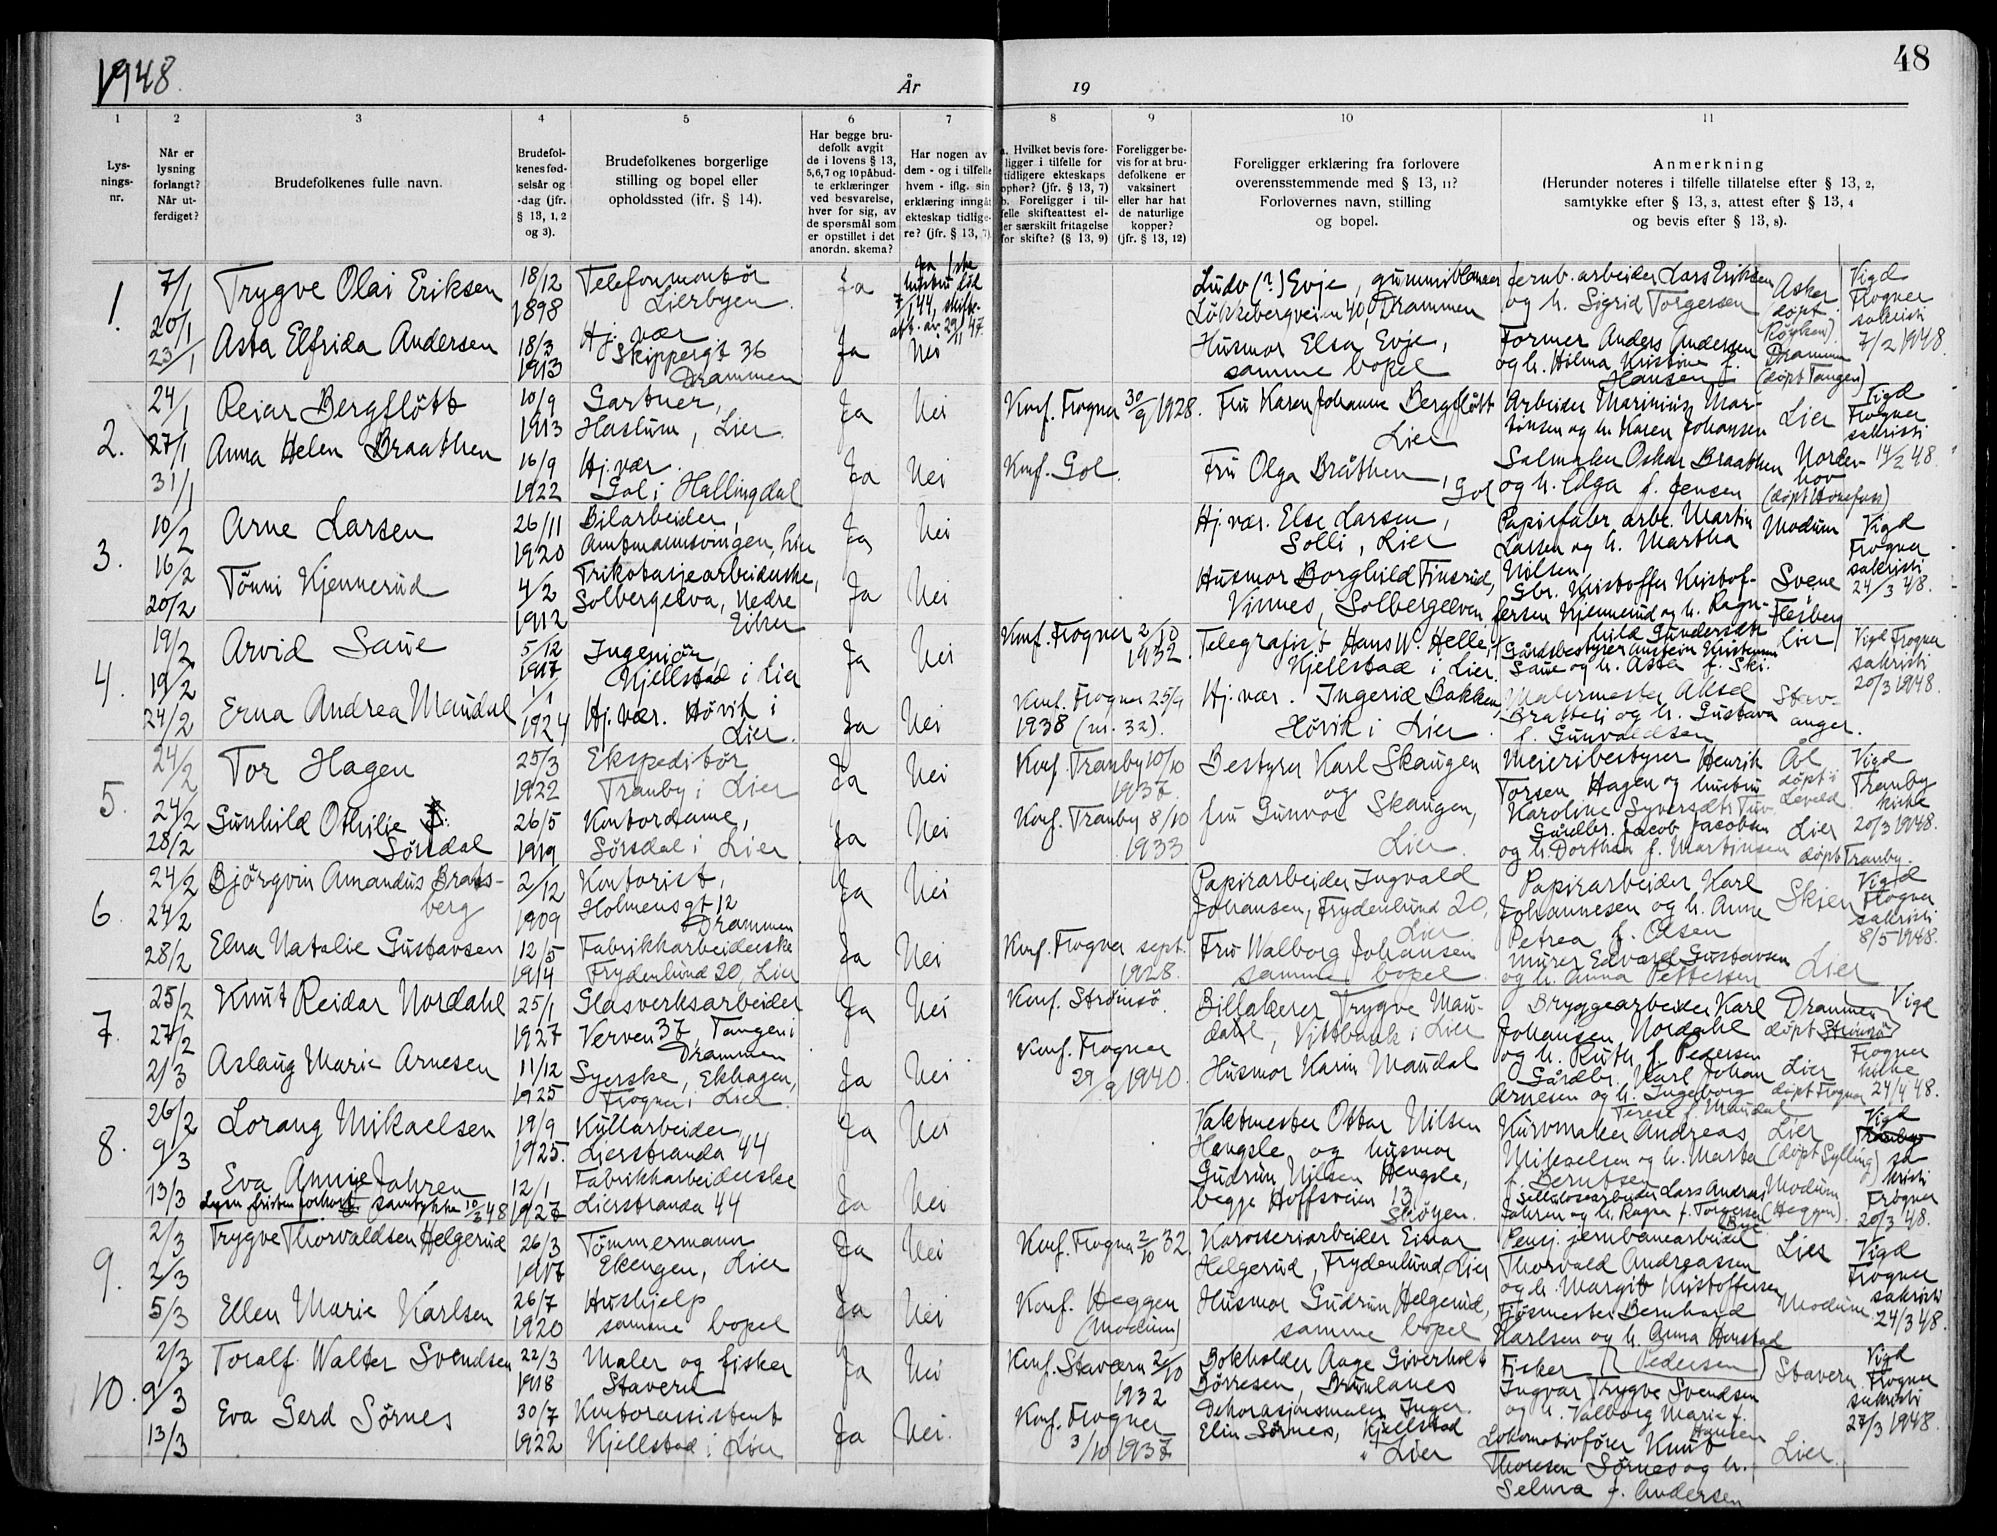 1948
År
19
48
1
2
3
4
5
6
7
8
9
10
11
Lys-
nings-
nr.
Når er
lysning
forlangt?
Når ut-
ferdiget?
Brudefolkenes fulle navn.
Brudefol-
kenes fød-
selsår og
-dag (jfr.
§ 13, 1, 2
og 3).
Brudefolkenes borgerlige
stilling og bopel eller
opholdssted (jfr. § 14).
Har begge bru-
defolk avgit
de i lovens § 13,
5,6,7 og 10 påbud-
te erklæringer
ved besvarelse,
hver for sig, av
de spørsmål som
er opstillet i det
anordn. skema?
Har nogen av
dem - og i tilfelle
hvem - iflg. sin
erklæring inngåt
ekteskap tidlige-
re? (jfr. § 13, 7)
a. Hvilket bevis fore-
ligger i tilfelle for
tidligere ekteskaps
ophør? (jfr. § 13, 7)
b. Foreligger i til-
felle skifteattest el-
ler særskilt fritagelse
for skifte? (§ 13, 9)
Foreligger be-
vis for at bru-
defolkene er
vaksinert
eller har hat
de naturlige
kopper?
(jfr. § 13, 12)
Foreligger erklæring fra forlovere
overensstemmende med § 13, 11?
Forlovernes navn, stilling
og bopel.
Anmerkning
(Herunder noteres i tilfelle tillatelse efter § 13, 2,
samtykke efter § 13, 3, attest efter § 13, 4
og bevis efter § 13, 8).
1.
7/1
20/1
23/1
Trygve Olai Eriksen
18/12
1898
Telefonmontör
Lierbyen
Ja
Ludv (?) Evje, gummi
Løkkebergveien 40, Drammen
Jernb. arbeider Lars Eriksen
og h. Sigrid Torgersen
Asker
døpt
Røyken)
Vigd
Frogner
sakristi
7/2 1948.
Asta Elfrida Andersen
18/3
1913
Hj. vær
Skippergt 36
Drammen
Ja
Nei
Husmor Elsa Evje,
samme bopel
Former Anders Andersen
og h. Hilma Kristine f.
Hansen
Drammen
(døpt Tangen)
2.
24/1
27/1
31/1
Reiar Bergflött
10/9
1913
Gartner,
Haslum, Lier
Ja
Nei
Konf. Frogner 30/9 1928.
Fru Karen Johanne Bergflött
Lier
Arbeider Marinius Mar-
tinsen og h. Karen Johansen
Lier
Vigd
Frogner
sakristi
14/2 48.
Anna Helen Braathen
16/9
1922
Hj. vær.
Gol i Hallingdal
Ja
Nei
Konf. Gol.
Fru Olga Bråthen,
Gol
Salmaker Oskar Braathen
og h. Olga f. Jensen
Norder-
hov
(døpt Hønefoss)
3.
10/2
16/2
20/2
Arne Larsen
26/11
1920
Bilarbeider,
Amtmannsvingen, Lier
Ja
Nei
Hj. vær. Else Larsen,
Solli, Lier
Papirfabr. arb. Martin
Larsen og h. Martha
Nilsen
Modum
Vigd
Frogner
sakristi
24/3 48.
Tönni Kjennerud
4/2
1912
Trikotasjearbeiderske,
Solbergelva, Nedre
Eiker
Ja
Nei
Husmor Borghild Finsrud,
Vinnes, Solbergelven
Gbr. Kristoffer Kristof-
fersen Kjennerud og h. Ragn-
hild Gundersdtr
Svene
i
Flesberg
4.
19/2
19/2
24/2
Arvid Saue
5/12
1917
Ingeniör,
Kjellstad i Lier
Ja
Nei
Konf. Frogner 2/10
1932.
Telegrafist Hans W. Helle,
Kjellstad i Lier.
Gårdsbestyrer Austein Kristensen
Saue og h. Asta f. Ski.
Lier
Vigd Frogner
sakristi
20/3 1948.
Erna Andrea Maudal
1/1
1924
Hj. vær. Høvik i
Lier.
Ja
Nei
Konf. Frogner 25/9
1938 (nr. 32).
Hj. vær. Ingerid Bakken,
Høvik i Lier.
Malermester Aksel
Bratteli og h. Gustava
f. Gunvaldsen
Stav-
anger.
5.
24/2
24/2
28/2
Tor Hagen
25/3
1922
Ekspeditør
Tranby i Lier
Ja
Nei
Konf. Tranby 10/10
1937.
Bestyrer Karl Skaugen
og
Meieribestyrer Henrik
Torsen Hagen og hustru
Karoline Syversdtr
Ål
døpt i
Leveld
Vigd
Tranby
kirke
20/3 1948.
Gunhild Othilie
Sørsdal
26/5
1919
Kontordame,
Sørsdal i Lier
Ja
Nei
Konf. Tranby 8/10
1933
fru Gunvor Skaugen,
Lier.
Gårdbr. Jacob Jacobsen
og h. Dorthea f. Martinsen
Lier
døpt Tranby.
6.
24/2
24/2
28/2
Bjørgvin Amandus Brats-
berg
2/12
1909
Kontorist,
Holmensgt 12
Drammen
Ja
Nei
Papirarbeider Ingvald
Johansen, Frydenlund 20,
Lier
Papirarbeider Karl
Johannesen og h. Anne
Petrea f. Olsen
Skien
Vigd
Frogner
sakristi
8/5 1948.
Elna Natalie Gustavsen
12/5
1914
Fabrikkarbeiderske
Frydenlund 20, Lier
Ja
Nei
Konf. Frogner sept.
1928.
Fru Walborg Johansen
samme bopel
Murer Edvard Gustavsen
og h. Anna Pettersen
Lier
7.
25/2
27/2
2/3
Knut Reidar Nordahl
25/1
1927
Glasverksarbeider
Verven 37, Tangen i
Drammen
Ja
Nei
Konf. Strømsø
Billakerer Trygve Mau-
dahl, Vittbank i Lier
Bryggearbeider Karl
Johansen Nordahl
og h. Ruth f. Pedersen
Drammen
døpt Strømsø
Vigd
Frogner
kirke
24/4 48.
Aslaug Marie Arnesen
11/12
1925
Syerske, Ekhagen,
Frogner i Lier.
Ja
Nei
Konf. Frogner
29/9 1940.
Husmor Karin Maudal
Gårdbr. Karl Johan
Arnesen og h. Ingeborg
Terese f. Maudal
Lier
døpt Frogner
8.
26/2
9/3
13/3
Lorang Mikaelsen
19/9
1925.
Kullarbeider
Lierstranda 44
Ja
Nei
Vaktmester Ottar Nilsen
Hengsle og husmor
Gudrun Nilsen Hengsle,
begge Hoffsveien 13
Skøyen.
Kurvmaker Andreas
Mikaelsen og h. Marta
f. Berntsen
Lier
(døpt Sylling)
Vigd
Tranby
sa
kristi
Frogner
20/3 48.
Eva Annie Jahren
12/1
1927
Fabrikkarbeiderske
Lierstranda 44
Ja
Nei
Cellulosearbeider Lars Andreas
Jahren og h. Ragna f. Torgersen
Modum
(Heggen)
9.
2/3
2/3
5/3
Trygve Thorvaldsen Helgerud
26/3
1917
Tömmermann
Ekengen, Lier
Ja
Nei
Konf. Frogner 2/10 32.
Karosseriarbeider Einar
Helgerud, Frydenlund, Lier
Pensj. jernbanearbeider
Thorvald Andreassen
og h. Margit Kristoffersen
Lier
Vigd
Frogner
sakristi
24/3 48.
Ellen Marie Karlsen
26/7
1920
Hushjelp
samme bopel
Ja
Nei
Konf. Heggen
(Modum)
Husmor Gudrun Helgerud,
samme bopel
Fjøsmester Bernhard
Karlsen og h. Anna Horstad
Modum
10.
2/3
9/3
13/3
Toralf Walter Svendsen
22/3
1918
Maler og fisker
Stavern
Ja
Nei
Konf. Stavern 2/10
1932
Bokholder Aage Giverholt
Børresen, Brunlanes
Fisker (Pedersen)
Ingvar Trygve Svendsen
og h. Valborg Marie f.
Hansen
Stavern.
Vigd
Frogner
sakristi
27/3 1948.
Eva Gerd Sörnes
30/7
1922
Kontorassistent
Kjellstad i Lier
Ja
Nei.
Konf. Frogner
3/10 1937
Dekorasjonsmaler Inger
Elin Sørnes, Kjellstad
i Lier
Lokomotivfører Knut
Thoresen Sørnes og h.
Selma f. Andersen
Lier.